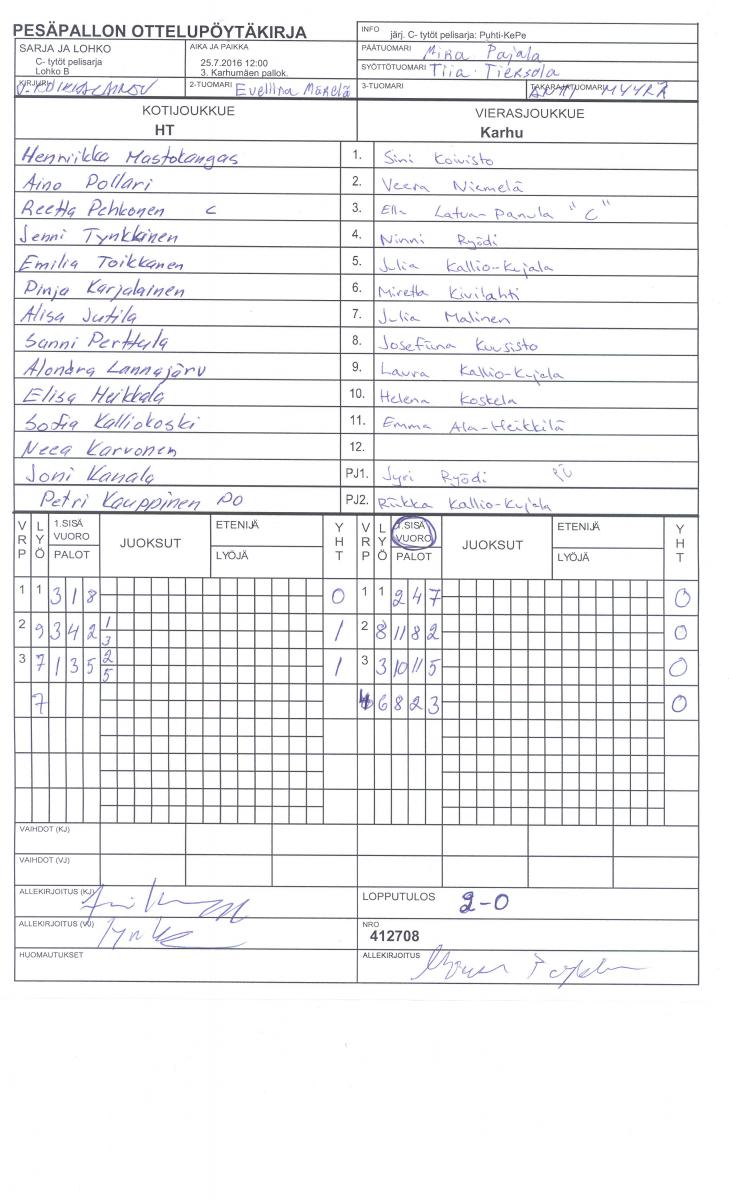 PESÄPALLON OTTELUPÖYTÄKIRJA
INFO järj. C- tytöt pelisarja: Puhti-KePe
SARJA JA LOHKO
C- tytöt pelisarja
Lohko B
AIKA JA PAIKKA
25.7.2016 12:00
3. Karhumäen pallok.
PÄÄTUOMARI Mira Pajala
SYÖTTÖTUOMARI Tiia Tiersola
KIRJURI
2-TUOMARI Evelliina Märelä
3-TUOMARI
TAKARAJATUOMARI ANTTI MYYRÄ
KOTIJOUKKUE
HT
VIERASJOUKKUE
Karhu
Henriikka Mastokangas 1. Sini Koivisto
Aino Pollari 2. Veera Niemelä
Reetta Pehkonen C 3. Ella Latva-Panula "C"
Jenni Tynkkinen 4. Ninni Ryödi
Emilia Toikkanen 5. Julia Kallio-Kujala
Pinja Karjalainen 6. Miretta Kivilahti
Alisa Jutila 7. Julia Malinen
Sanni Perttula 8. Josefiina Kuusisto
Alondra Lannajärv 9. Laura Kallio-Kujala
Elisa Heikkala 10. Helena Koskela
Sofia Kalliokoski 11. Emma Ala-Heikkilä
Neea Karvonen 12.
Joni Kanala PJ1. Jyri Ryödi
Petri Kauppinen PO PJ2. Riikka Kallio-Kujala
VRP LYÖ 1.SISÄ VUORO PALOT JUOKSUT ETENIJÄ LYÖJÄ YHT VRP LYÖ 1.SISÄ VUORO PALOT JUOKSUT ETENIJÄ LYÖJÄ YHT
1 1 3 1 8 0 1 1 2 4 7 0
2 9 3 4 2 1 3 1 2 8 11 8 2 0
3 7 1 3 5 2 5 1 3 3 10 11 5 0
7 4 6 8 2 3 0
VAIHDOT (KJ)
VAIHDOT (VJ)
ALLEKIRJOITUS (KJ)
LOPPUTULOS 2-0
ALLEKIRJOITUS (VJ)
NRO
412708
HUOMAUTUKSET
ALLEKIRJOITUS